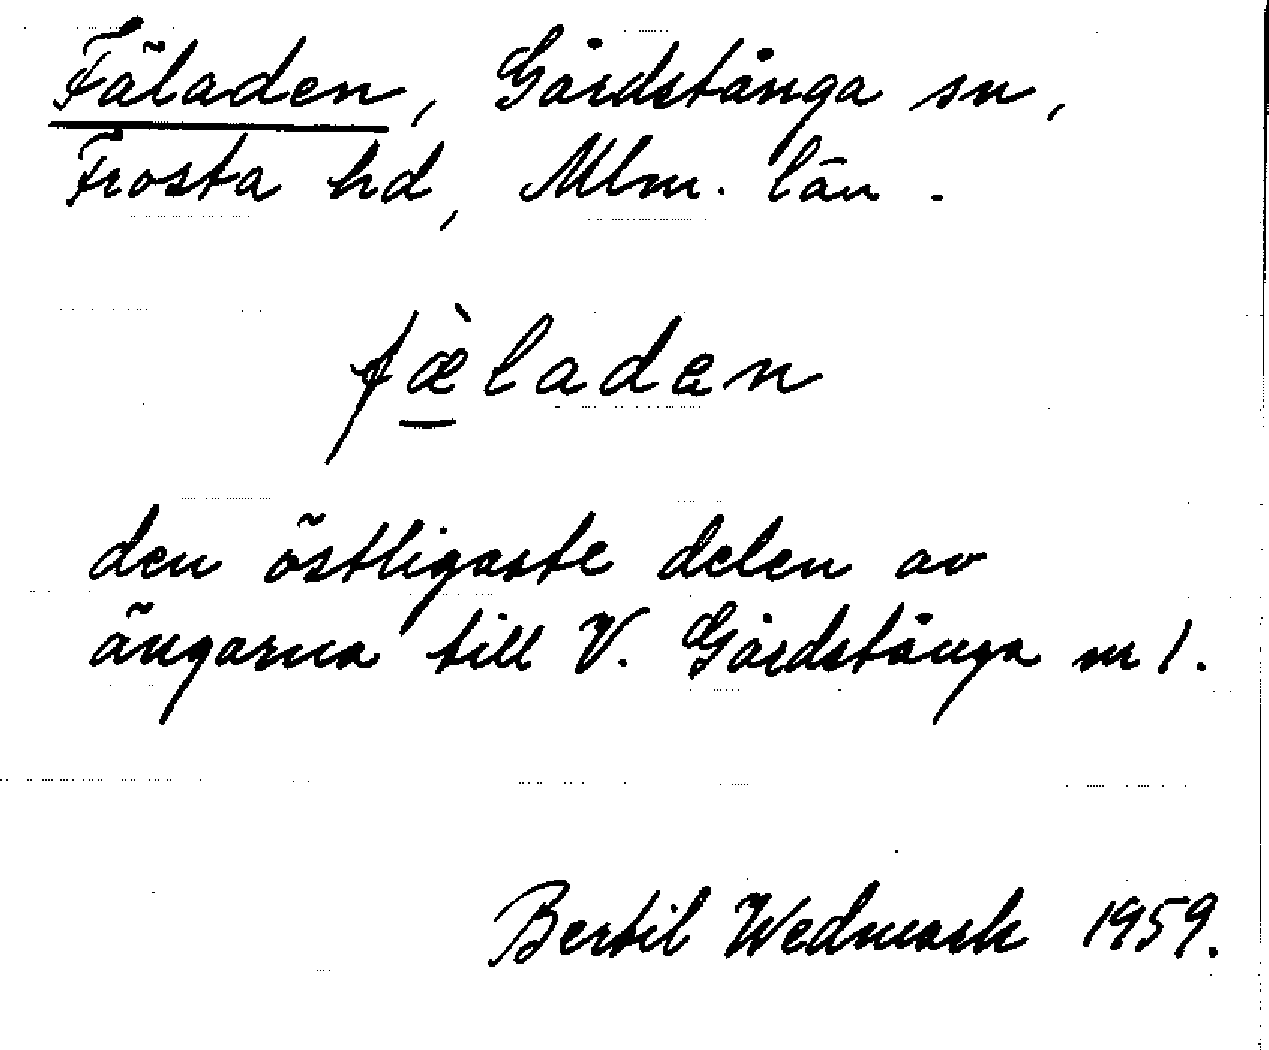 Fäladen, Gårdstånga sn,
Frosta hd, Mlm. län.
fæ̀laden
den östligaste delen av
ängarna till V. Gårdstånga nr 1.
Bertil Wedmark 1959.